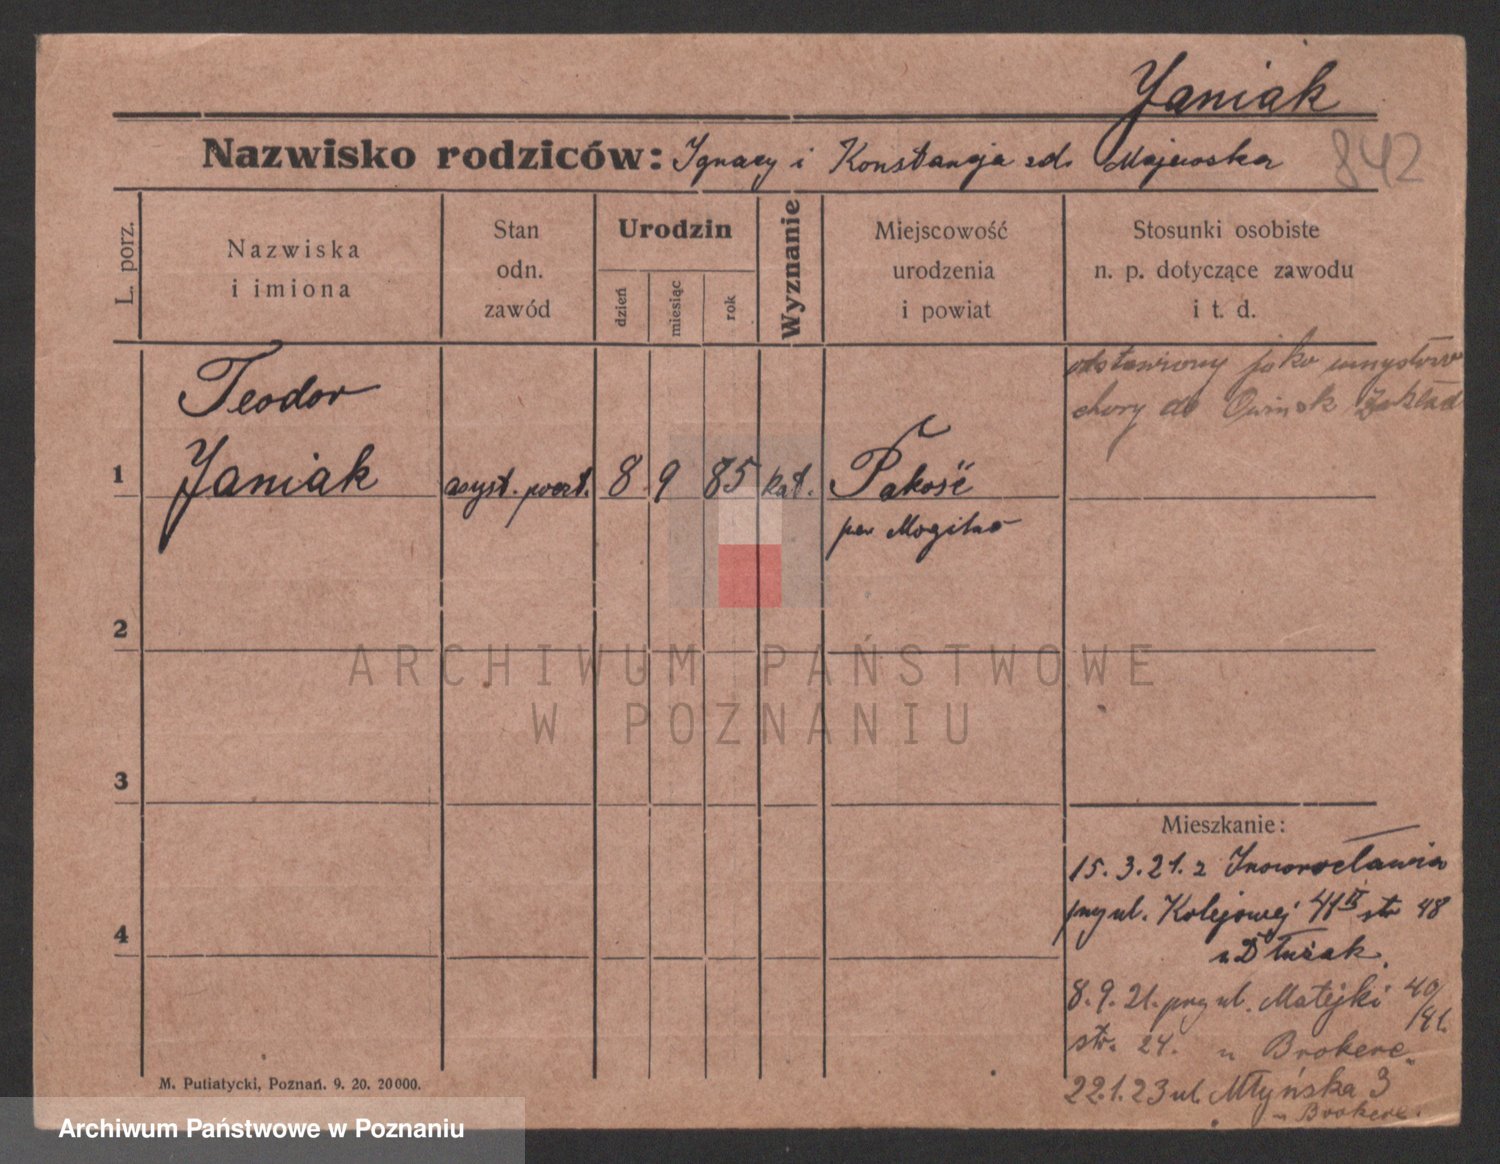 Janiak
Nazwisko rodziców: Ignacy i Konstancja zd. Majewska
842
L. porz.
Nazwiska
i imiona
Stan
odn.
zawód
Urodzin
dzień
miesiąc
rok
Wyznanie
Miejscowość
urodzenia
i powiat
Stosunki osobiste
n. p. dotyczące zawodu
i t. d.
odstawiony jako umysłowo
chory do Owińsk Zakład
Teodor
1 Janiak asyst. poczt. 8 9 85 kat. Pakość
pow Mogilno
2
ARCHIWUM PAŃSTWOWE
W POZNANIU
3
Mieszkanie:
15.3.21. z Inowrocławia
przy ul. Kolejowej str 48
4
8.9.21. przy ul. Matejki 40/
str. 24. u Brokere
22.1.23 ul. Młyńska 3
u Brokere.
M. Putiatycki, Poznań. 9. 20. 20000.
Archiwum Państwowe w Poznaniu